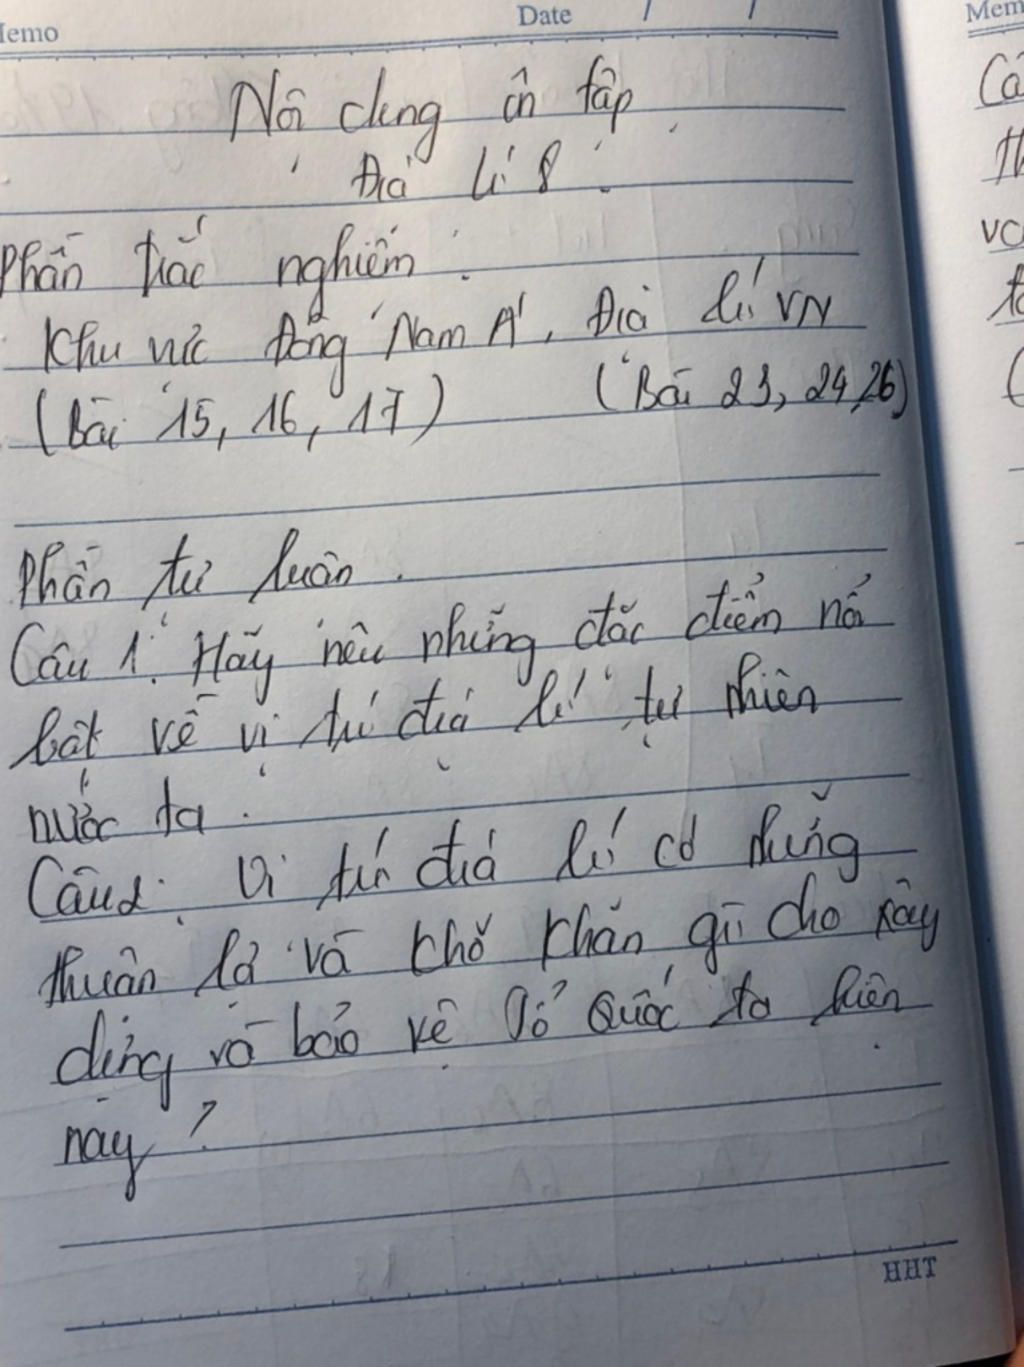 Memo Date / /
Nội dung ôn tập
Địa lí 8
Phần trắc nghiệm:
Khu vực Đông Nam Á, Địa lí VN
(Bài 15, 16, 17) (Bài 23, 24, 26)
Phần tự luận.
Câu 1. Hãy nêu những đặc điểm nổi
bật về vị trí địa lí tự nhiên
nước ta.
Câu 2: Vị trí địa lí có những
thuận lợi và khó khăn gì cho xây
dựng và bảo vệ Tổ Quốc ta hiện
nay?
HHT
Mem